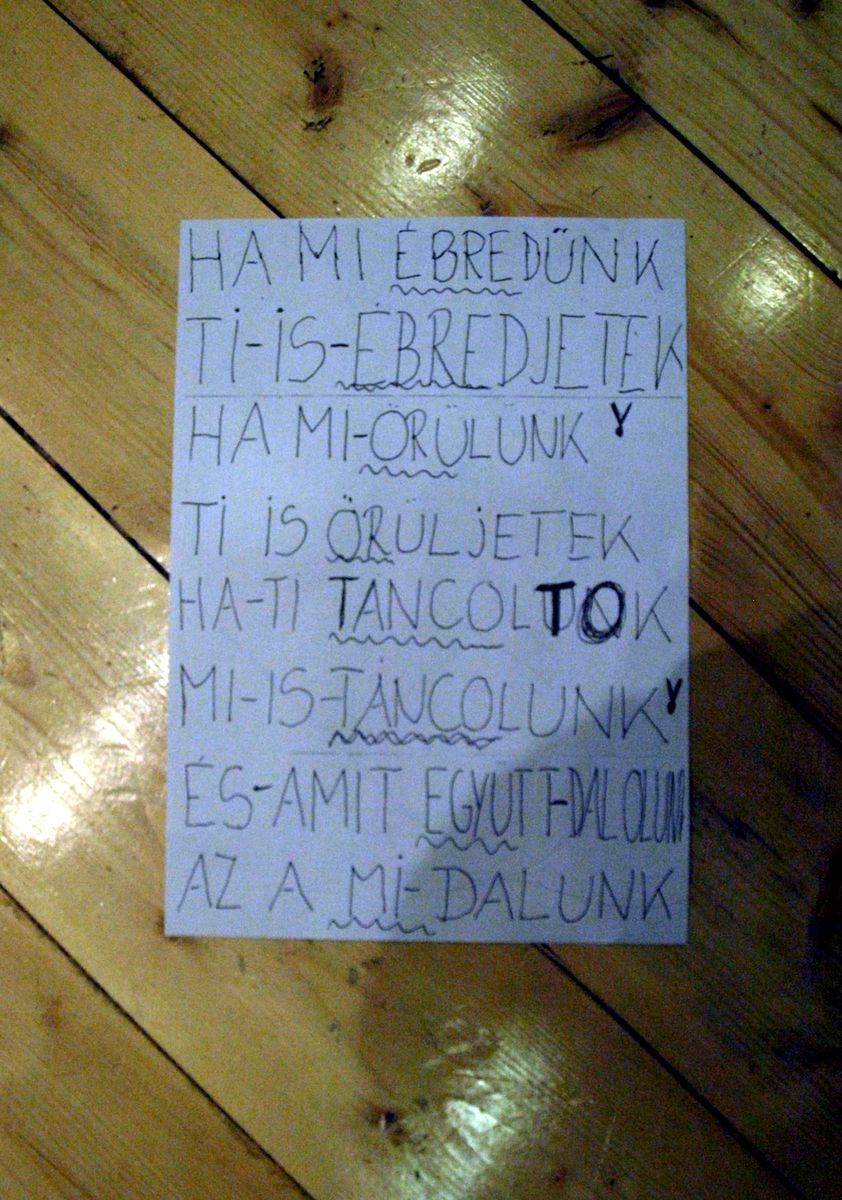 HA MI ÉBREDÜNK
TI-IS-ÉBREDJETEK
HA MI-ÖRÜLÜNK Y
TI IS ÖRÜLJETEK
HA-TI TANCOLTOK
MI-IS-TÁNCOLUNK Y
ÉS-AMIT EGYÜTT-DALOLUNK
AZ A MI-DALUNK